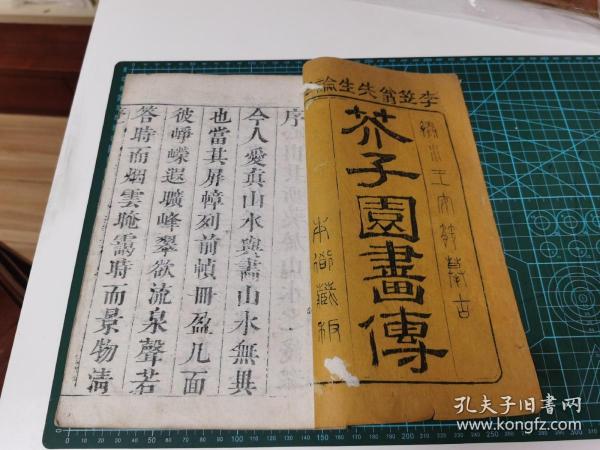 李笠翁先生論
芥子園畫傳
本衙藏板
序
今人愛真山水與畫山水無異
也當其屏幛列前幀冊盈几面
彼崢嶸遐曠峰翠欲流泉聲若
答時而烟雲晻靄時而景物清
孔夫子旧书网
www.kongfz.com